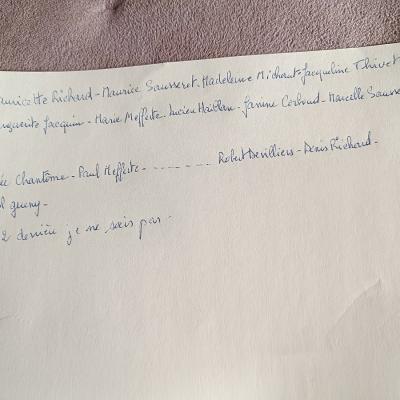 auricette Richard - Maurice Sausseret - Madeleine Michaut - Jacqueline Thivet
rguerite Jacquin - Marie Meffeite - Lucien - Janine Cerbaud - Marcelle Sausse
ée Chantôme - Paul Meffeite - - - - - - - - Robert Devilliers - Denis Richard -
l gueny -
2 derrière je ne sais pas -